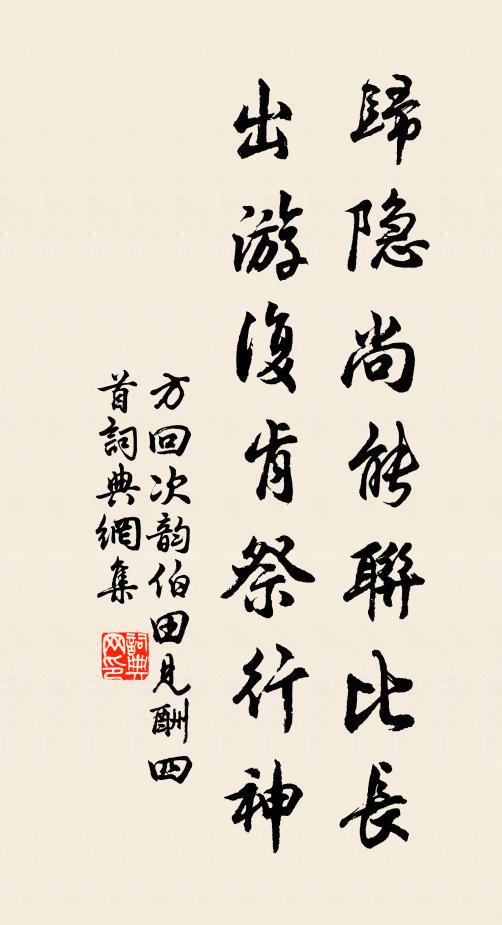 歸隐尚能聯比長
出游復肯祭行神
方回次韵伯田見酬四
首詞典網集
詞典网印